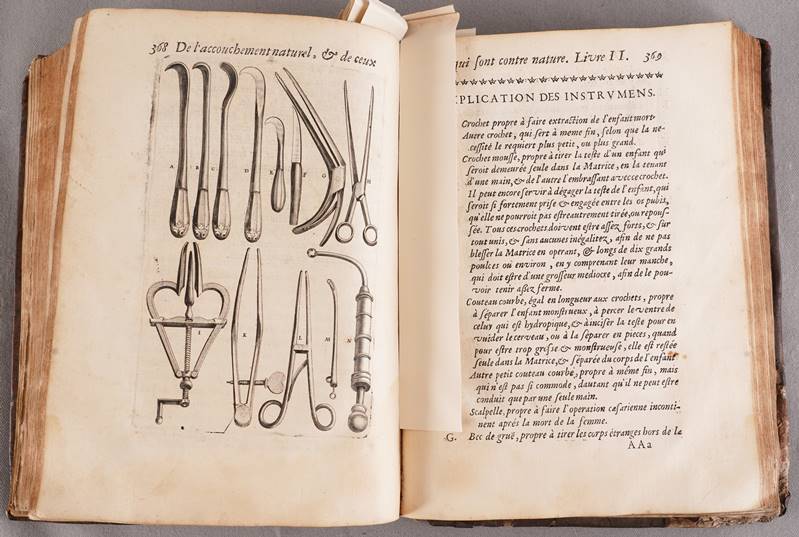 368 De l'accouchement naturel, & de ceux
A
B
C
D
E
F
G
H
I
K
L
M
N
qui sont contre nature. Livre II. 369
PLICATION DES INSTRVMENS.
Crochet propre à faire extraction de l'enfant mort
Autre crochet, qui sert à même fin, selon que la ne-
cessité le requiert plus petit, ou plus grand.
Crochet mousse, propre à tirer la teste d'un enfant qui
seroit demeurée seule dans la Matrice, en la tenant
d'une main, & de l'autre l'embrassant avec ce crochet.
Il peut encore servir à dégager la teste de l'enfant, qui
seroit si fortement prise & engagée entre les os pubis,
qu'elle ne pourroit pas estre autrement tirée, ou repouss-
sée. Tous ces crochets doivent estre assez forts, & sur
tout unis, & sans aucunes inégalitez, afin de ne pas
blesser la Matrice en operant, & longs de dix grands
poulces ou environ, en y comprenant leur manche,
qui doit estre d'une grosseur médiocre, afin de le pou-
voir tenir assez ferme.
Couteau courbe, égal en longueur aux crochets, propre
à séparer l'enfant monstrueux, à percer le ventre de
celuy qui est hydropique, & à inciser la teste pour en
vuider le cerveau, ou à la séparer en pieces, quand
pour estre trop grosse & monstrueuse, elle est restée
seule dans la Matrice, & séparée du corps de l'enfant
Autre petit couteau courbe, propre à même fin, mais
qui n'est pas si commode, dautant qu'il ne peut estre
conduit que par une seule main.
Scalpelle, propre à faire l'operation cæsarienne inconti-
nent aprés la mort de la femme.
G. Bec de gruë, propre à tirer les corps étranges hors de la
AAa